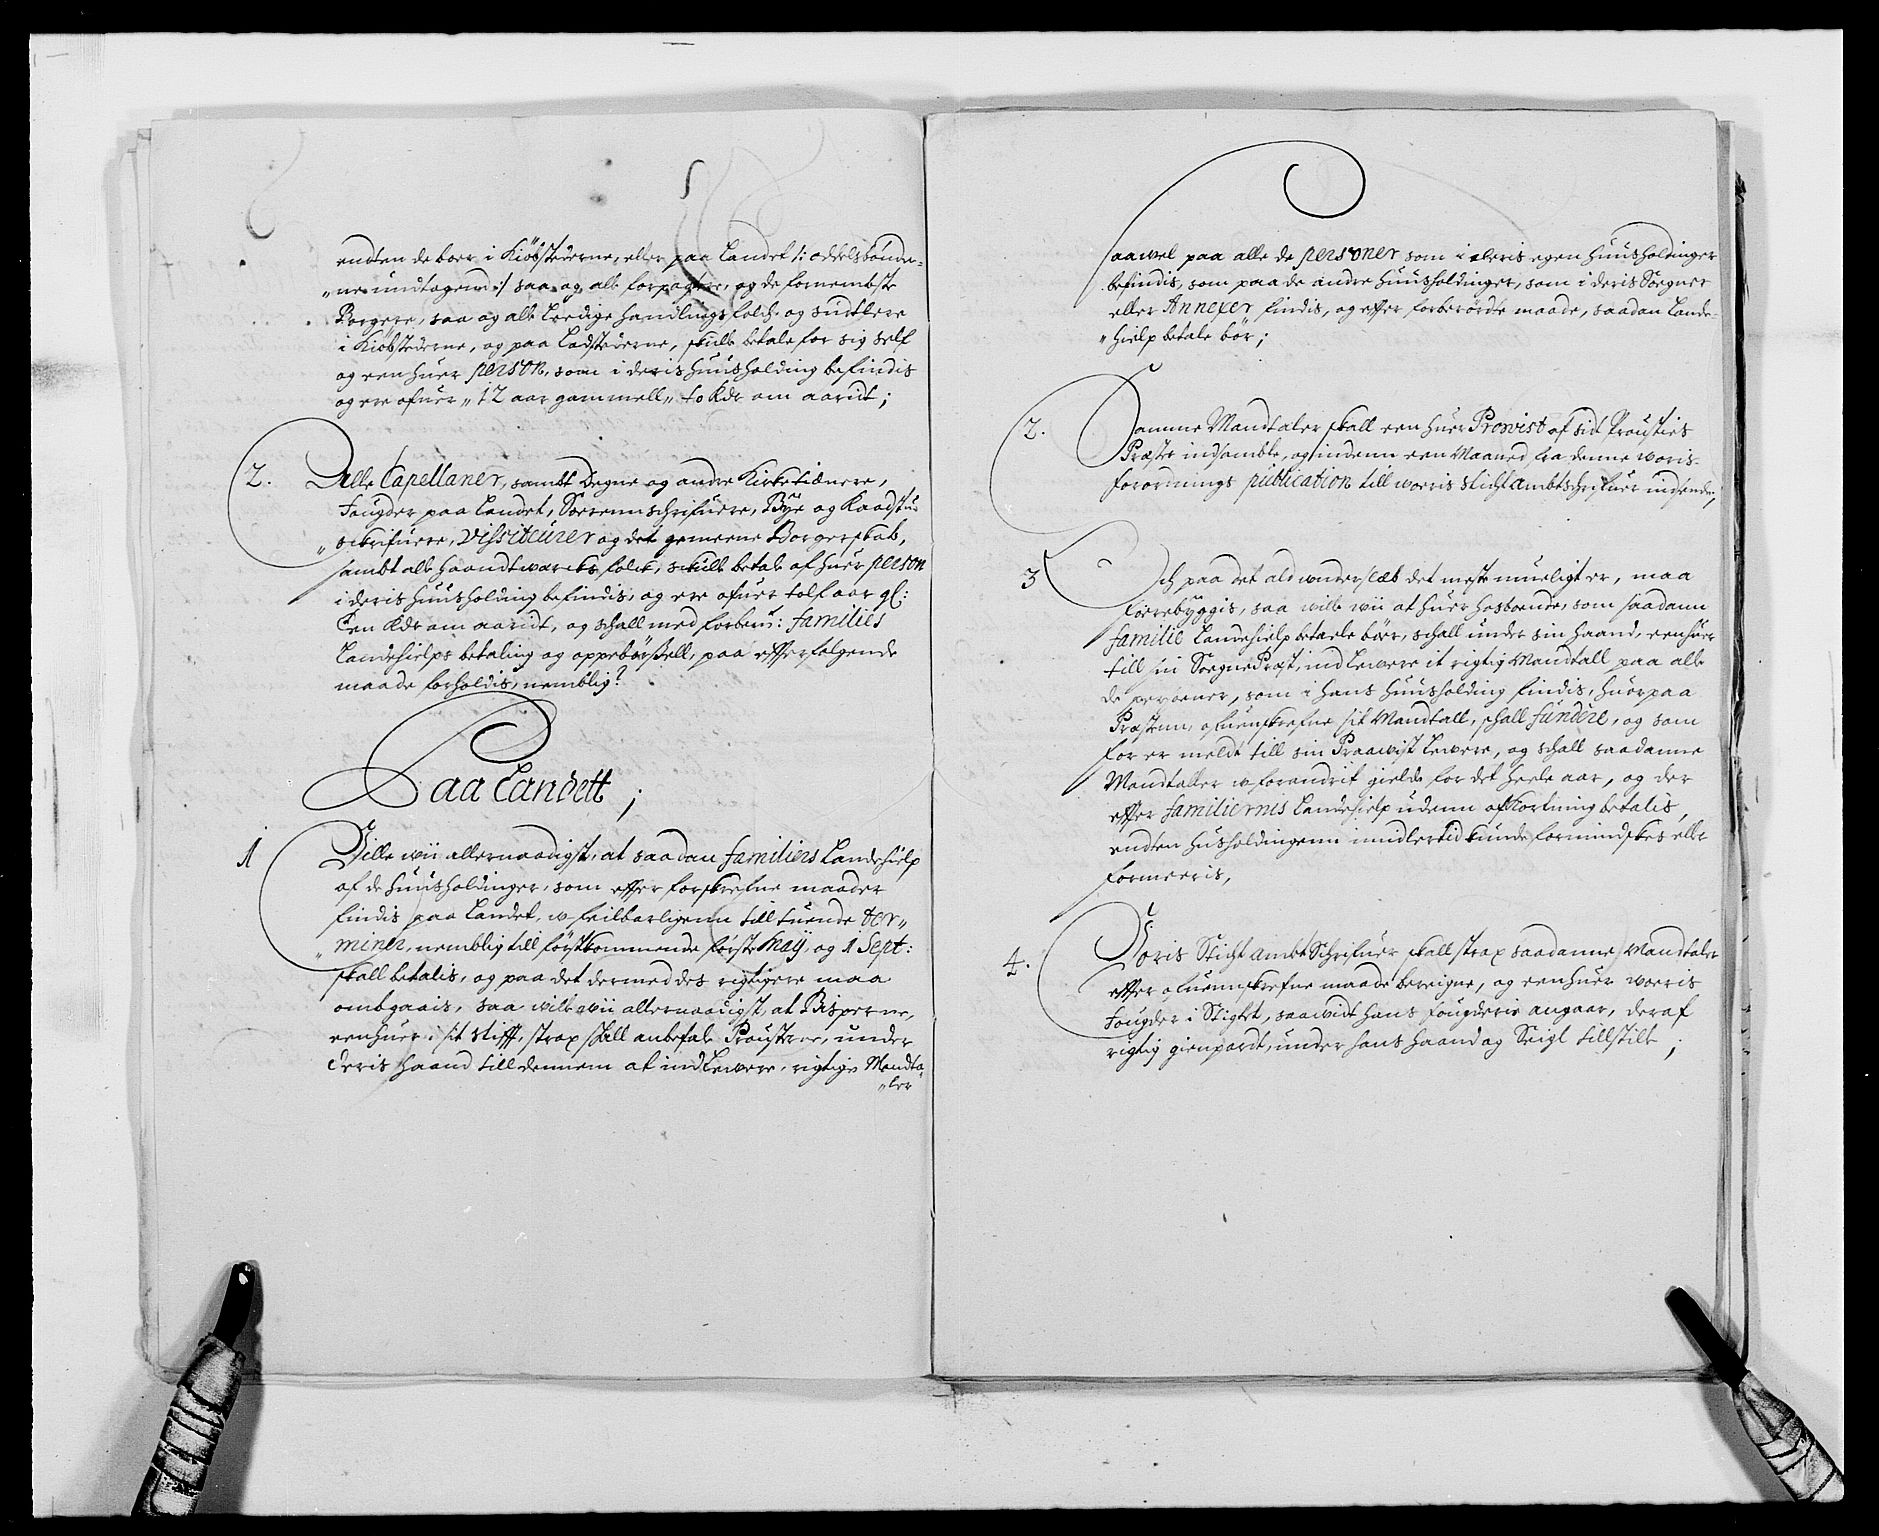 endten de boer i Kiöbstederne, eller paa Landet /: oddelsbønde-
„ne undtagend :/ saa og alle forpagtere, og de fornembste
Borgere, saa og alle Ledige handlings folch og Sudtlere
i Kiöbstederne, og paa Ladstederne, skulle betale for sig self
og een huer person, som i deris huusholding befindis
og ere ofuer „12 aar gammell„ to Rdr om aarit;
2. Alle Capellaner, sambt Degne og andre Kirketiænere,
Fougder paa Landet, Sorrenschrifuere, Bye og Raadstu-
„schrifuere, Vissiteürer og det gemeene Borgerskab,
sambt alle haandtwercks folck, skulle betale af huer person
i deris huusholding befindis, og ere ofuer tolf aar gl:
Een Rdr om aarit, og schall med forbenr: families
Landehielps betaling og oppebørsell, paa effterfølgende
maade forholdis, nemblig?
Paa Landett;
1 Ville wii allernaadigst, at saadan familiens Landehielp
af de huusholdinger, som effter forskrefne maader
findis paa Landet, ufeilbarligenn till tuende ter„
„miner, nemblig till førstkommende første Maÿ, og 1 Sept:
skall betalis, og paa det dermed des rigtigere maa
ombgaais, saa wille wii allernaadigst, at Bisperne,
eenhuer i sit stifft, strax skall anbefale Prousterne, under
deris haand till dennem at indLewere, rigtige Mandta
„ler
saawel paa alle de personer som i deris egen huusholdinger
befindis, som paa de andre huusholdinger, som i deris Sogner
eller Annexer findis, og effter forberörde maade, saadan Lande-
„hielp betale bör;
2. Samme Mandtaler skall een huer Prowist af sit Prousties
Præster indsamble, og indenn een Maaned fra denne woris
forordnings publication till worris Stigt Ambtschrifuer indsende;
3 Och paa det ald underslæb det meste mueligt er, maa
forrebyggis, saa wille wii at huer hosbonde, som saadann
familie Landehielp betaele böer, schall under sin haand, een huer
till sin SogнеPræst, indLewere it rigtig Mandtall paa alle
de personer, som i hans huusholding findis, huorpaa
Præstenn, ofuenskrefne sit Mandtall, skall fundere, og som
for er meldt till sin Praawist Lewere, og schall saadanne
Mandtaller uforandrit gielde for det heele aar, og der
effter familiernis Landehielp udenn afkortning betalis,
endten husholdingenn imidlertid kunde formindskes eller
formeeris,
4. Voris Stigt Ambt Schrifuer skall strax saadanne Mandtaler
effter ofuennskrefne maade bereigne, og een huer worris
Fougder i Stigtet, saawidt hans fougderie angaar, deraf
rigtig gienpardt, under hans haand og Seigl tillstille;